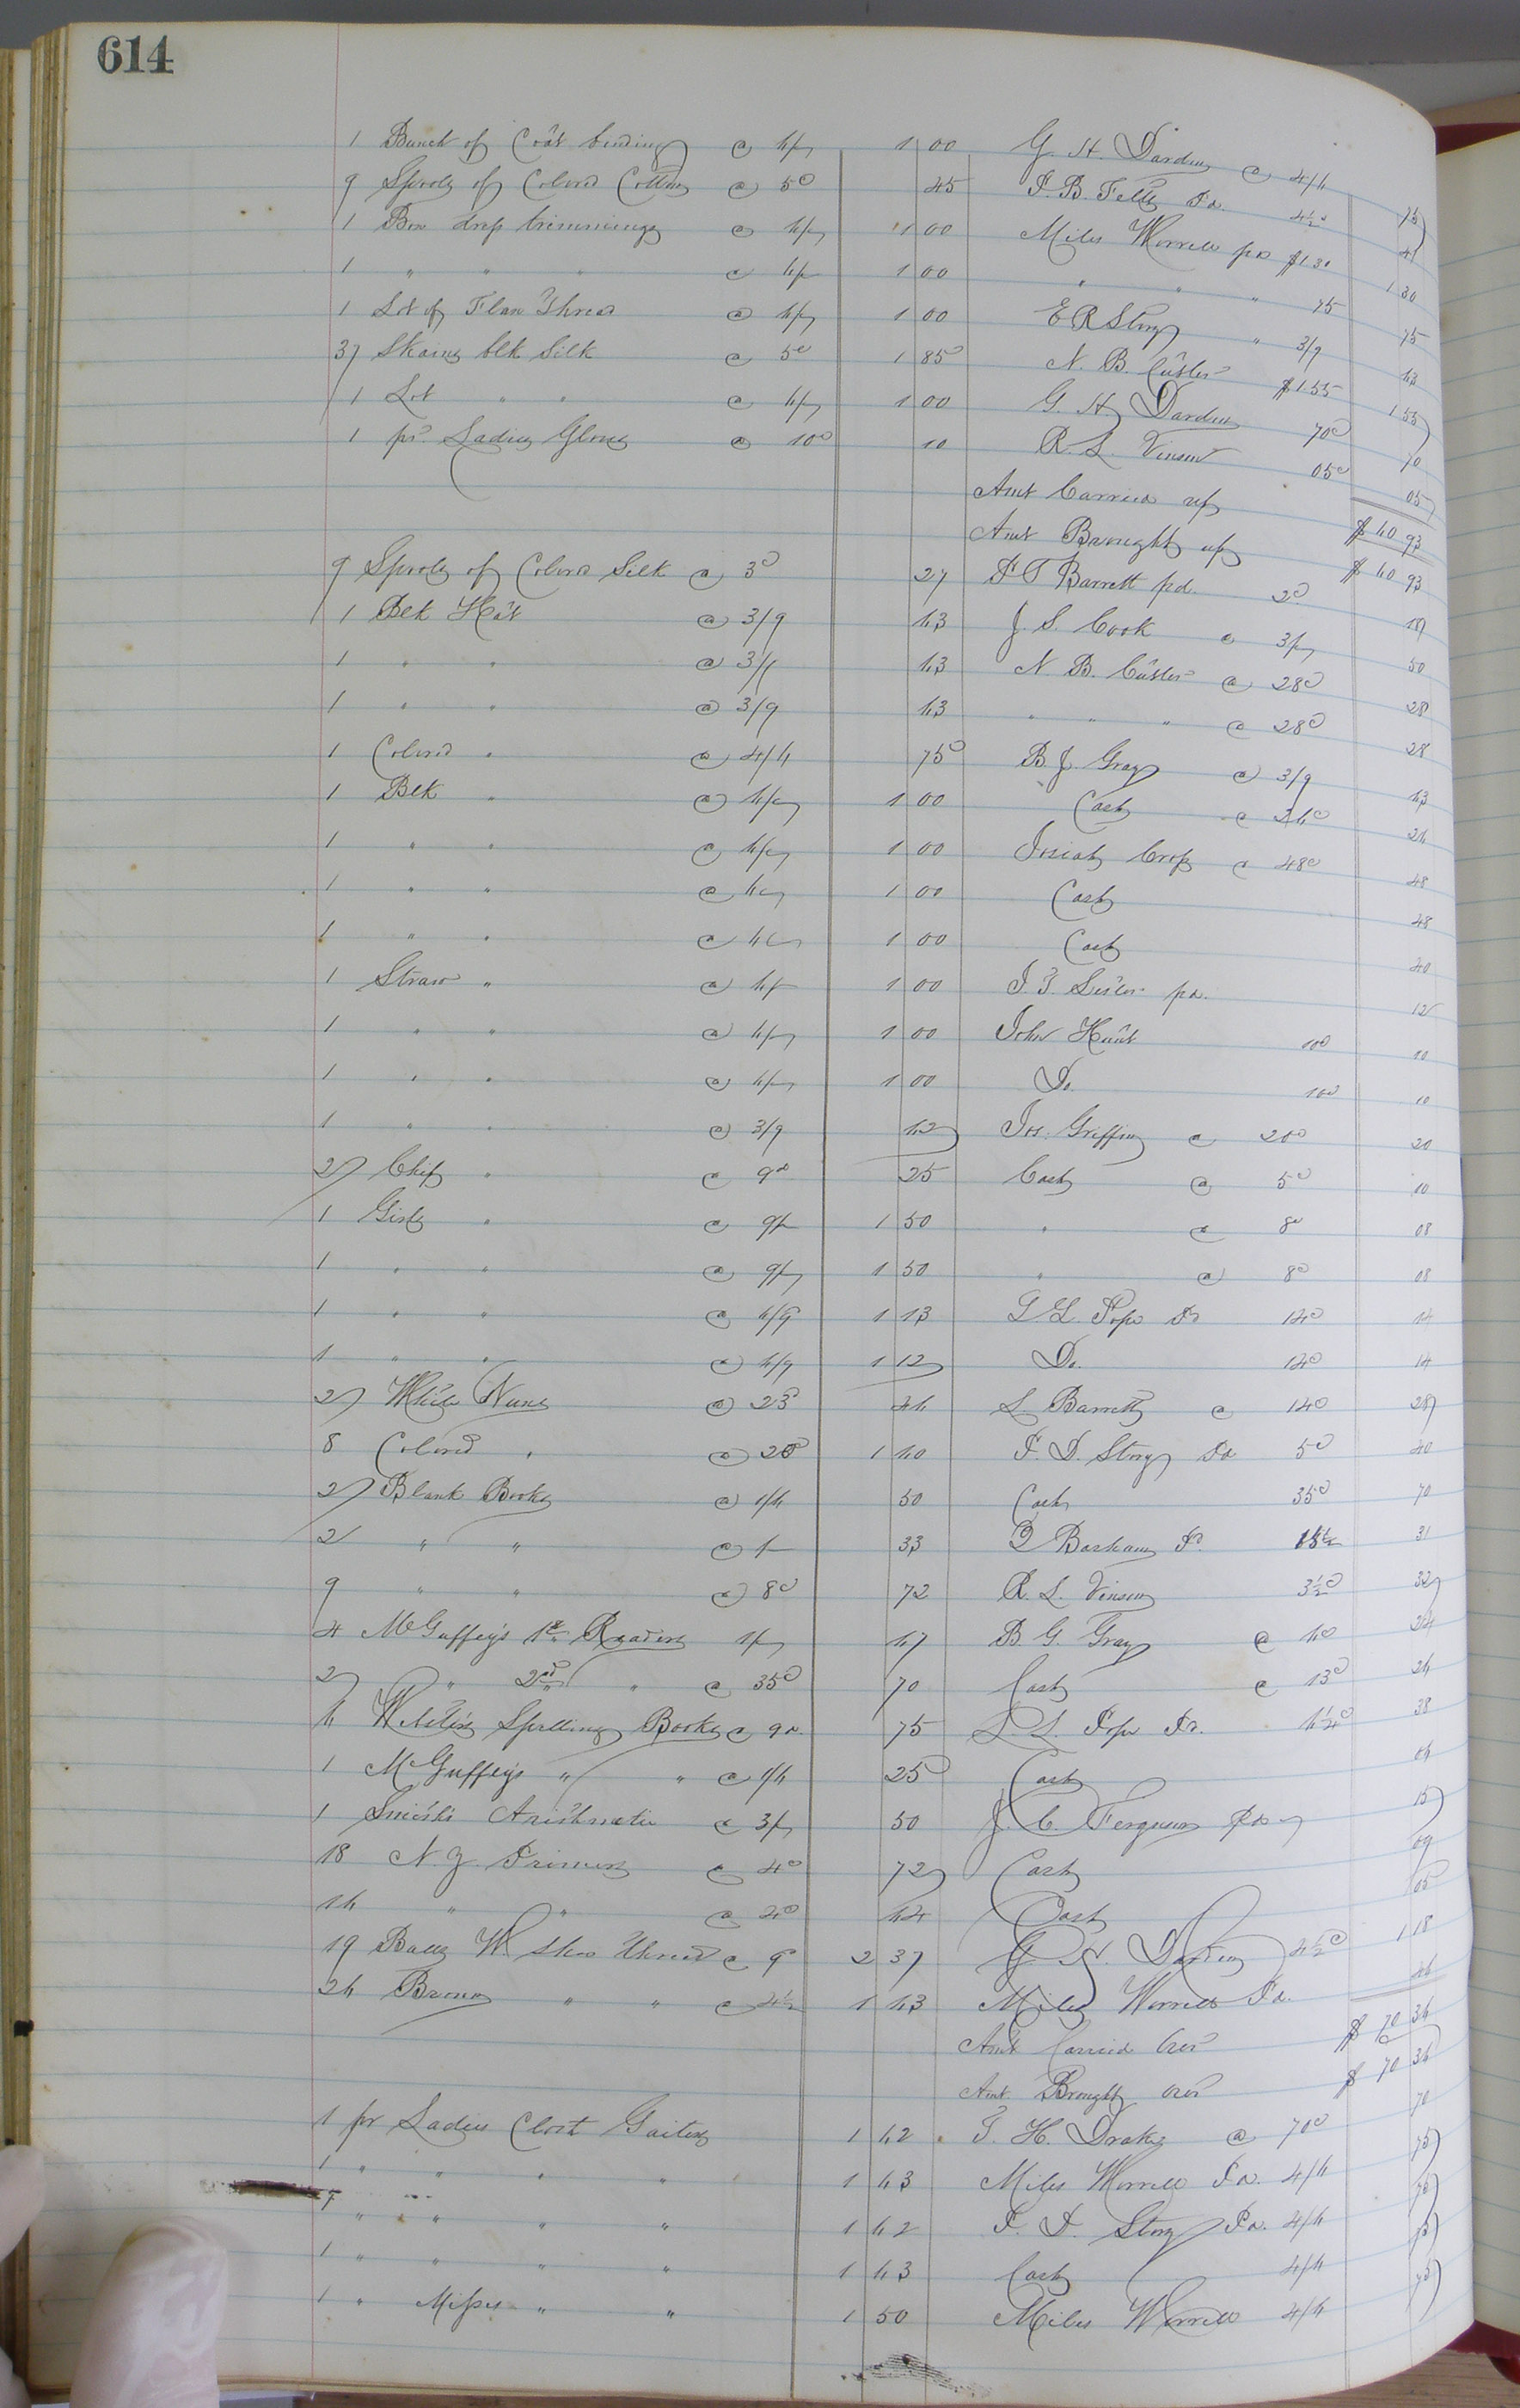 614
1 Bunch of Coat binding @ 6/ 1 00 G. H. Darden @ 4/6 75
9 Spools of Colord Cotton @ 5c 45 P. B. Felts Pd. 4½c 41
1 Box dress trimmings @ 6/ 1 00 Miles Worrell pd $1.30 1 30
1 " " " @ 6/ 1 00 " " " 75 75
1 Lot of Flax Thread @ 6/ 1 00 E R Story " 3/9 63
37 Skains blk Silk @ 5c 1 85 N. B. Cutler $1.55 1 55
1 Lot " " @ 6/ 1 00 G. H. Darden 70c 70
1 pr. Ladies Glove @ 10c 10 R. L. Vinson 05c 05
Amt Carried up $60 93
Amt Brought up $60 93
9 Spools of Colord Silk @ 3c 27 P T Barrett pd. 2c 18
1 Blk Hat @ 3/9 63 J. S. Cook @ 3/ 50
1 " " @ 3/9 63 N. B. Cutler @ 28c 28
1 " " @ 3/9 63 " " " @ 28c 28
1 Colord " @ 4/6 75 B. J. Gray @ 3/9 63
1 Blk " @ 6/ 1 00 Cash @ 26c 26
1 " " @ 6/ 1 00 Josiah Crop @ 48c 48
1 " " @ 6/ 1 00 Cash 48
1 " " @ 6/ 1 00 Cash 40
1 Straw " @ 6/ 1 00 J. T. Lester pd. 12
1 " " @ 6/ 1 00 John Hunt 10c 10
1 " " @ 6/ 1 00 Do. 10c 10
1 " " @ 3/9 62 Jos. Griffin @ 20c 20
2 Chip " @ 9d 25 Cash @ 5c 10
1 Girls " @ 9/ 1 50 " @ 8c 08
1 " " @ 9/ 1 50 " @ 8c 08
1 " " @ 6/9 1 13 L L. Pope Pd 14c 14
1 " " @ 6/9 1 12 Do. 14c 14
2 White Nuns @ 23c 46 L. Barrett @ 14c 28
8 Colord " @ 20c 1 60 P. D. Story Pd 5c 40
2 Blank Books @ 1/6 50 Cash 35c 70
2 " " @ 1/ 33 Barham Pd. 15½ 31
9 " " @ 8c 72 R. L. Vinson 3½c 32
4 McGuffey's 1st Readers 1/ 67 B. G. Gray @ 6c 24
2 " 2nd " @ 35c 70 Cash @ 13c 26
6 Webster's Spelling Books @ 9d. 75 L. L. Pope Pd. 6¼c 38
1 McGuffey's " " @ 1/6 25 Cash 06
1 Smith's Arithmetic @ 3/ 50 J. C. Ferguson Pd 15
18 N. Y. Primers @ 4c 72 Cash 09
16 " " @ 4c 64 Cash 05
19 Balls W. Shoe Thread @ 9d 2 37 G. H. Darden 4½c 1 18
26 Brown " " @ 4½ 1 63 Miles Worrell Pd. 46
Amt Carried Over $70 36
Amt. Brought over $70 36
1 pr Ladies Cloth Gaiters 1 62 T. H. Drake @ 70c 70
1 " " " " 1 63 Miles Worrell Pd. 4/6 75
" " " " 1 62 P. D. Story Pd. 4/6 75
1 " " " " 1 63 Cash 4/6 75
1 " Misses " " 1 50 Miles Worrell 4/6 75